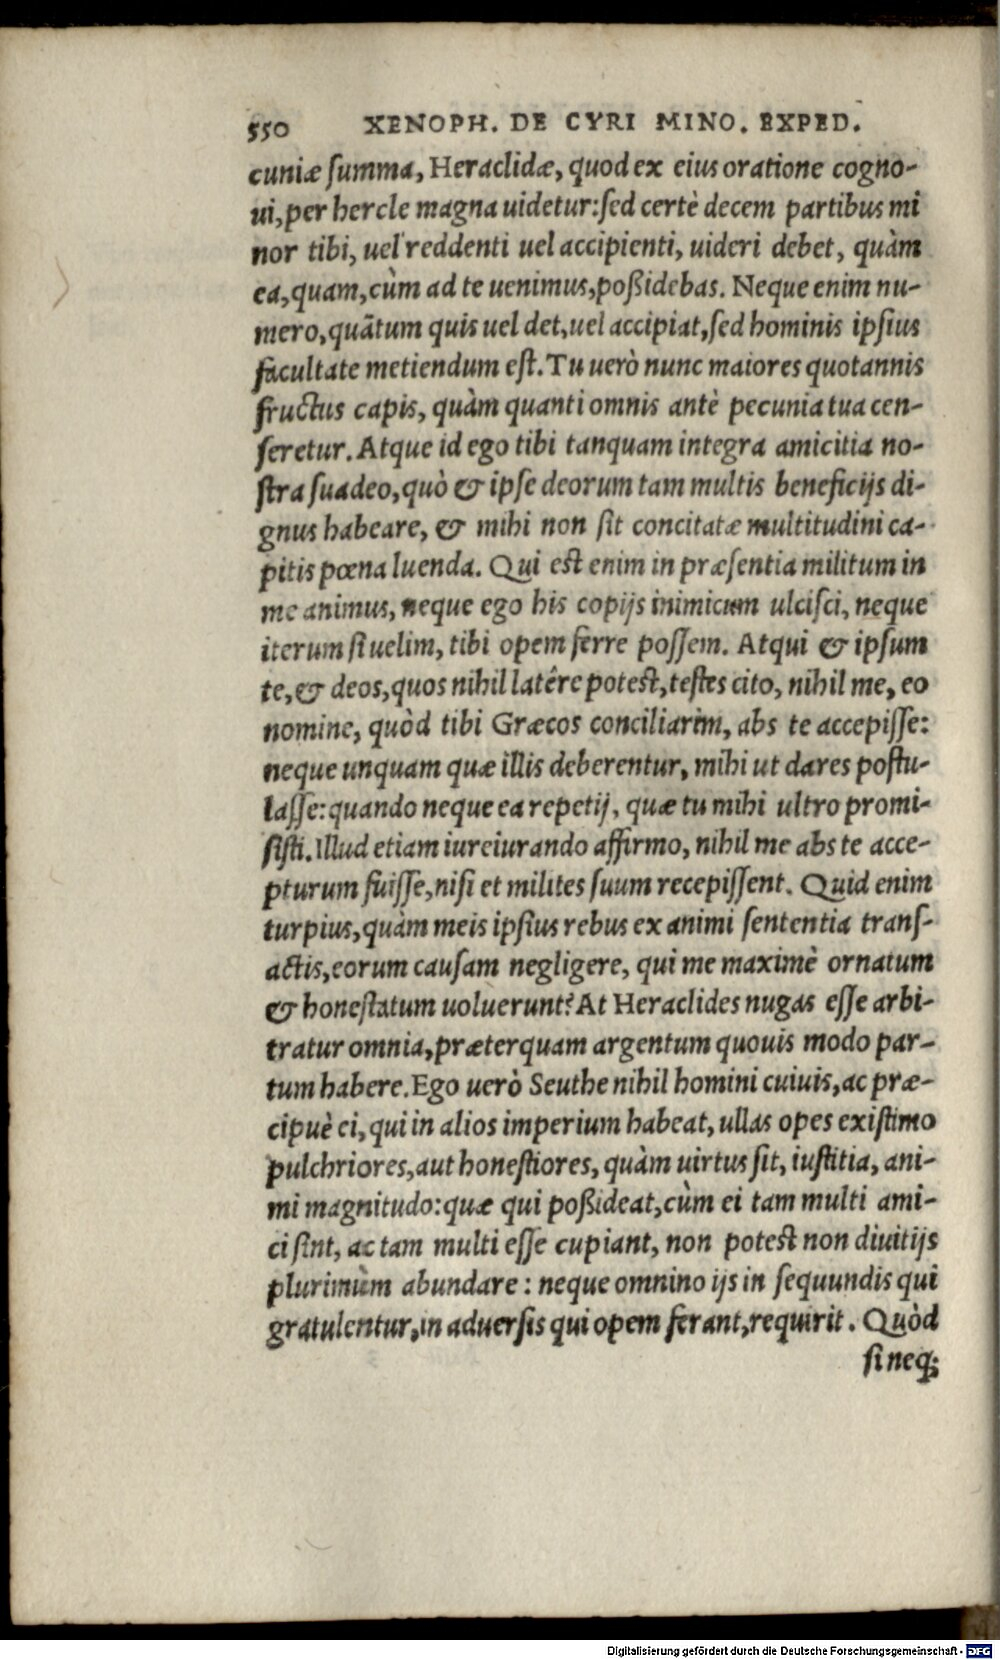 550 XENOPH. DE CYRI MINO. EXPED.
cuniæ summa, Heraclidæ, quod ex eius oratione cogno-
ui, per hercle magna uidetur: sed certè decem partibus mi
nor tibi, uel reddenti uel accipienti, uideri debet, quàm
ea, quam, cùm ad te uenimus, poßidebas. Neque enim nu-
mero, quãtum quis uel det, uel accipiat, sed hominis ipsius
facultate metiendum est. Tu uerò nunc maiores quotannis
fructus capis, quàm quanti omnis antè pecunia tua cen-
seretur. Atque id ego tibi tanquam integra amicitia no-
stra suadeo, quò & ipse deorum tam multis beneficijs di-
gnus habeare, & mihi non sit concitatæ multitudini ca-
pitis pœna luenda. Qui est enim in præsentia militum in
me animus, neque ego his copijs inimicum ulcisci, neque
iterum si uelim, tibi opem ferre possem. Atqui & ipsum
te, & deos, quos nihil latêre potest, testes cito, nihil me, eo
nomine, quòd tibi Græcos conciliarim, abs te accepisse:
neque unquam quæ illis deberentur, mihi ut dares postu-
lasse: quando neque ea repetij, quæ tu mihi ultro promi-
sisti. Illud etiam iureiurando affirmo, nihil me abs te acce-
pturum fuisse, nisi et milites suum recepissent. Quid enim
turpius, quàm meis ipsius rebus ex animi sententia trans-
actis, eorum causam negligere, qui me maximè ornatum
& honestatum uoluerunt? At Heraclides nugas esse arbi-
tratur omnia, præterquam argentum quouis modo par-
tum habere. Ego uerò Seuthe nihil homini cuiuis, ac præ-
cipuè ei, qui in alios imperium habeat, ullas opes existimo
pulchriores, aut honestiores, quàm uirtus sit, iustitia, ani-
mi magnitudo: quæ qui poßideat, cùm ei tam multi ami-
ci sint, ac tam multi esse cupiant, non potest non diuitijs
plurimùm abundare: neque omnino ijs in sequundis qui
gratulentur, in aduersis qui opem ferant, requirit. Quòd
si neq;
Digitalisierung gefördert durch die Deutsche Forschungsgemeinschaft - DFG